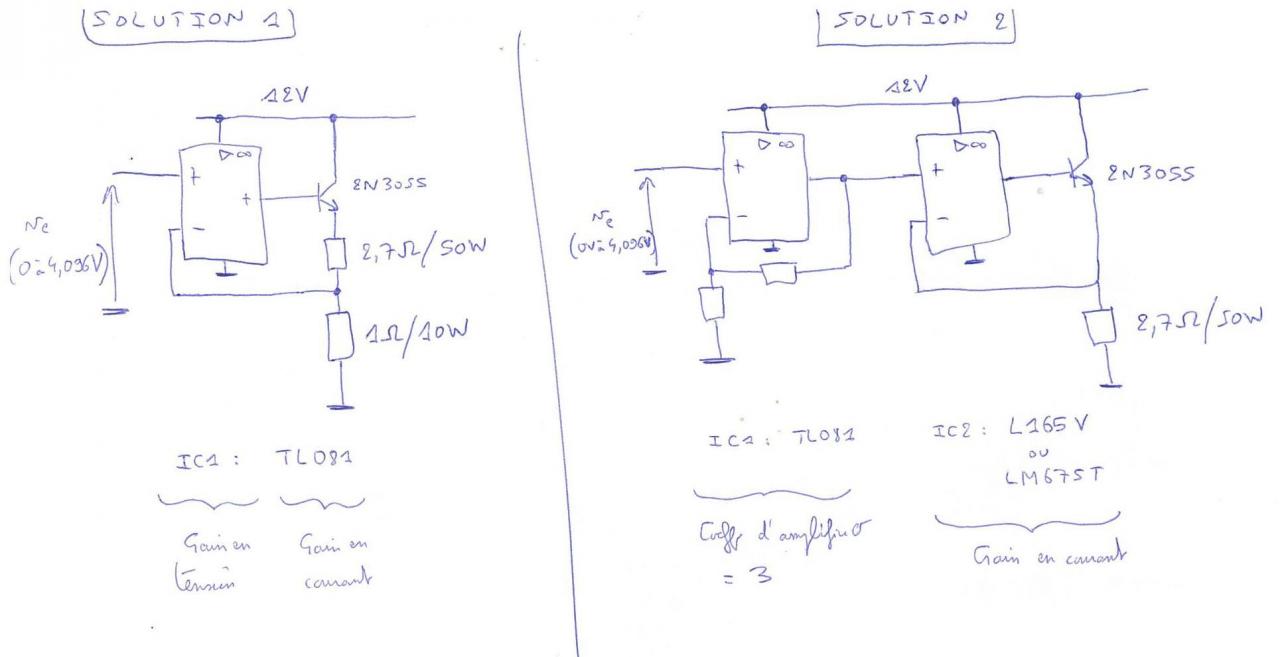 SOLUTION 1
12V
▷∞
+
+
-
2N3055
Ve
(0 à 4,096V)
2,7Ω/50W
1Ω/10W
IC1 : TL081
Gain en
tension
Gain en
courant
SOLUTION 2
12V
▷∞
+
-
▷∞
+
-
2N3055
Ve
(0V à 4,096V)
2,7Ω/50W
IC1 : TL081
Coeff d'amplificº
= 3
IC2 : L165V
ou
LM675T
Gain en courant